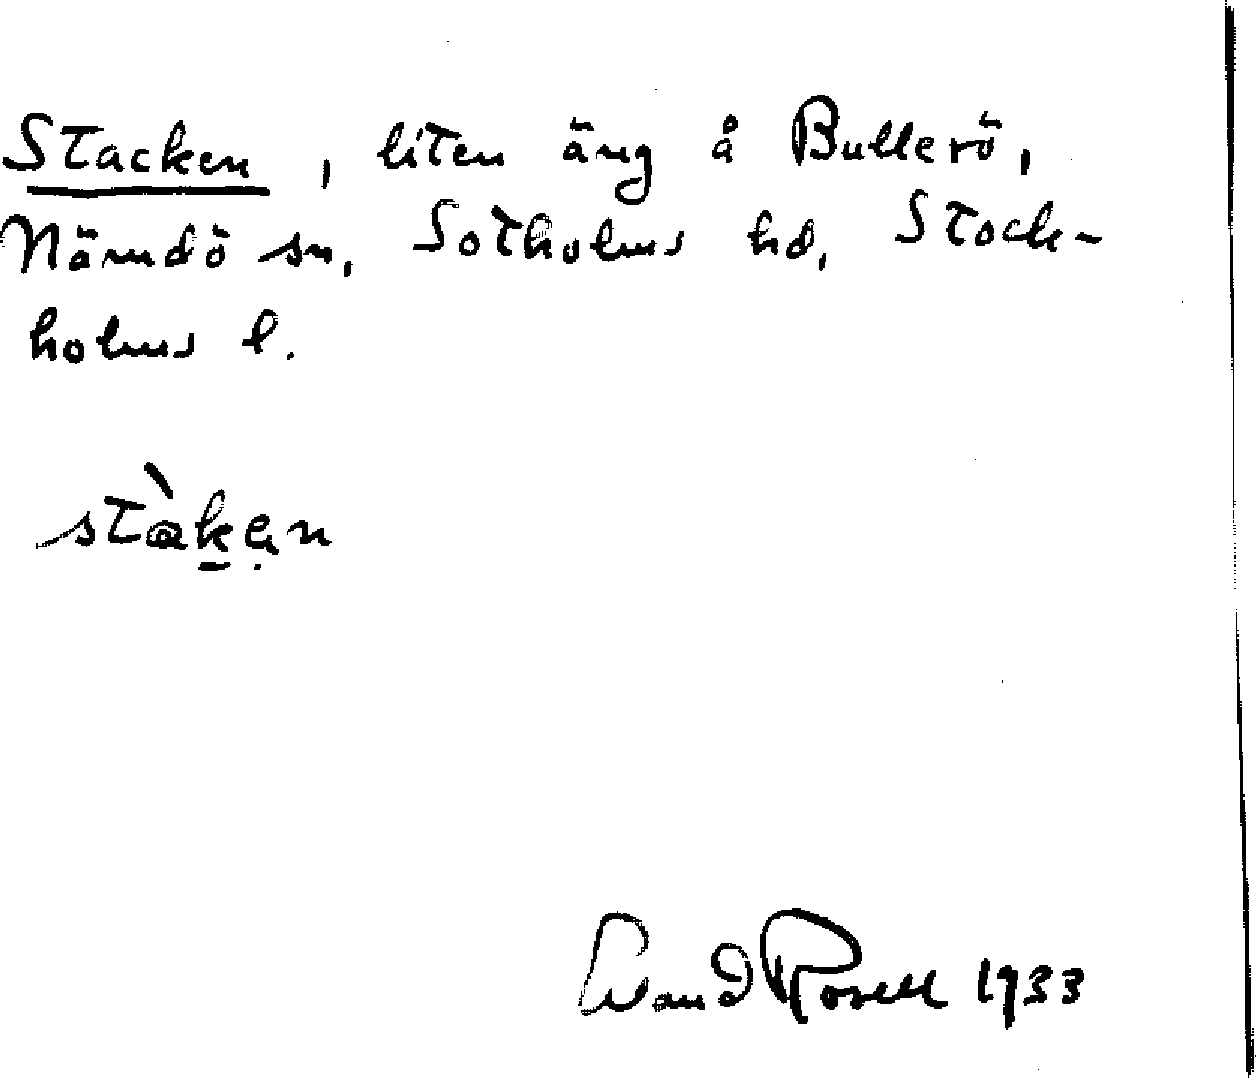 Stacken, liten äng å Bullerö,
Nämdö sn, Sotholms hd, Stock-
holms l.
stàkẹn
Rosell 1933